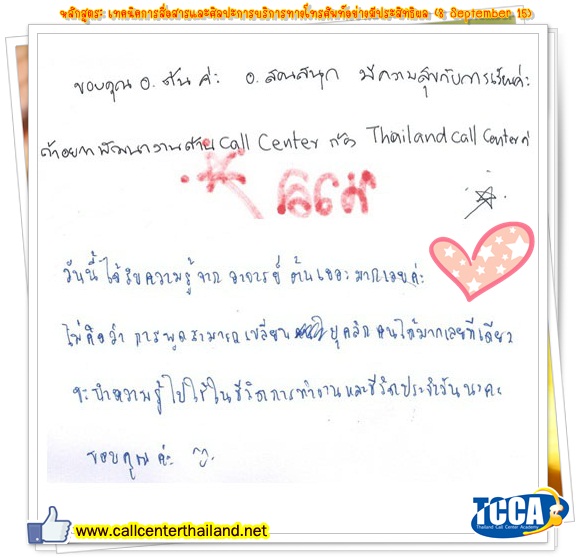 หลักสูตร: เทคนิคการสื่อสารและศิลปะการบริการทางโทรศัพท์อย่างมีประสิทธิผล (8 September 15)
ขอบคุณ อ. ต้น ค่ะ อ. สอนสนุก มีความสุขกับการเรียนค่ะ
ถ้าอยากพัฒนางานด้าน Call Center ต้อง Thailand Call Center ค่ะ
วันนี้ได้รับความรู้จาก อาจารย์ ต้นเยอะมากเลยค่ะ
ไม่คิดว่า การพูดสามารถเปลี่ยน บุคลิกคนได้มากเลยทีเดียว
จะนำความรู้ไปใช้ในชีวิตการทำงานและชีวิตประจำวันนะคะ
ขอบคุณค่ะ
www.callcenterthailand.net
TCCA
Thailand Call Center Academy